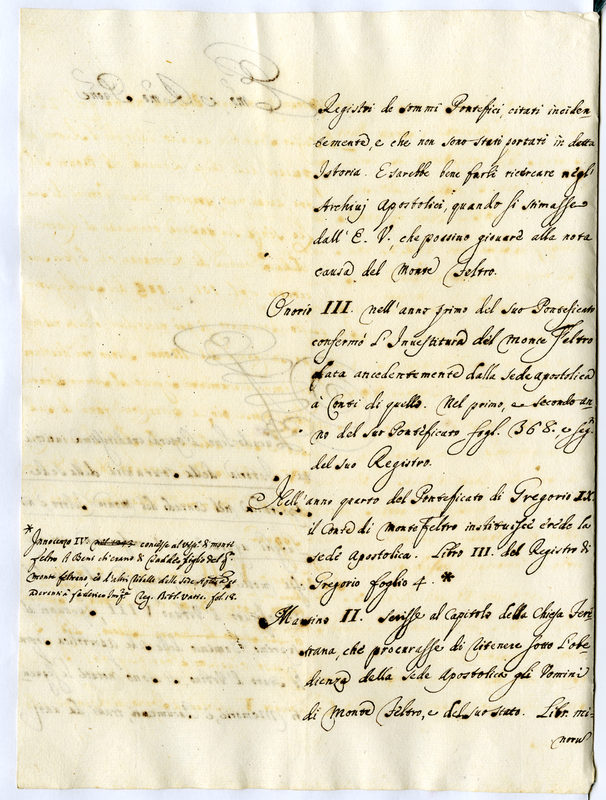 Registri de sommi Pontefici, citati inciden-
temente, e che non sono stati portati in detta
Istoria. E sarebbe bene farli ricercare negli
Archivj Apostolici, quando si stimasse
dall' E. V. che possino giovare alla nota
causa del Monte Feltro.
Onorio III. nell' anno primo del suo Ponteficato
confermò l'Investitura del Monte Feltro
data ancedentemente dalla Sede Apostolica
à Conti di quello. Nel primo, e secondo an-
no del suo Ponteficato fogl. 368. e seg.
del suo Registro.
Nell' anno quarto del Ponteficato di Gregorio IX.
il Conte di Monte Feltro instituisce erede la
sede Apostolica. Libro III. del Registro di
Gregorio foglio 4. *
* Innocenzo IV. nel 1243 concesse al di monte
feltro li Beni ch'erano di figlo del
monte feltrano, ed altri delle Sede
aderenti à faderico Reg. Bibl. Vatic. fol. 18.
Martino II. scrisse al Capitolo della Chiesa Fere-
trana, che procurasse di ritenere sotto l'obe
dienza della Sede Apostolica gli Uomini
di Monte Feltro, e del suo stato. Libr. mi-
noru